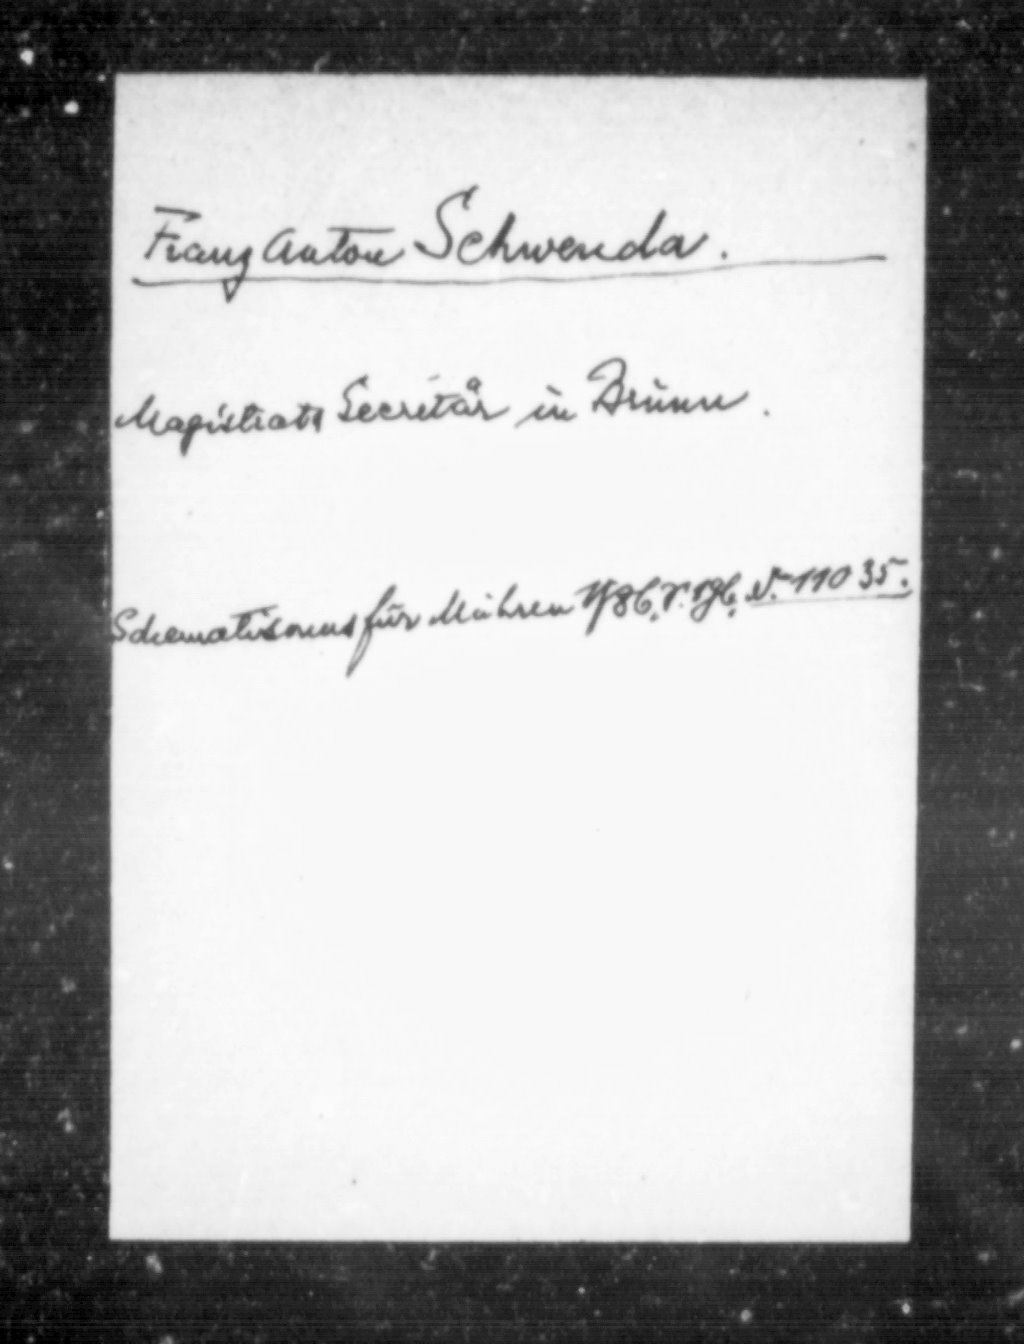 Franz Anton Schwenda.
Magistrats Secretär in Brünn.
Schematismus für Mähren N. 11035.